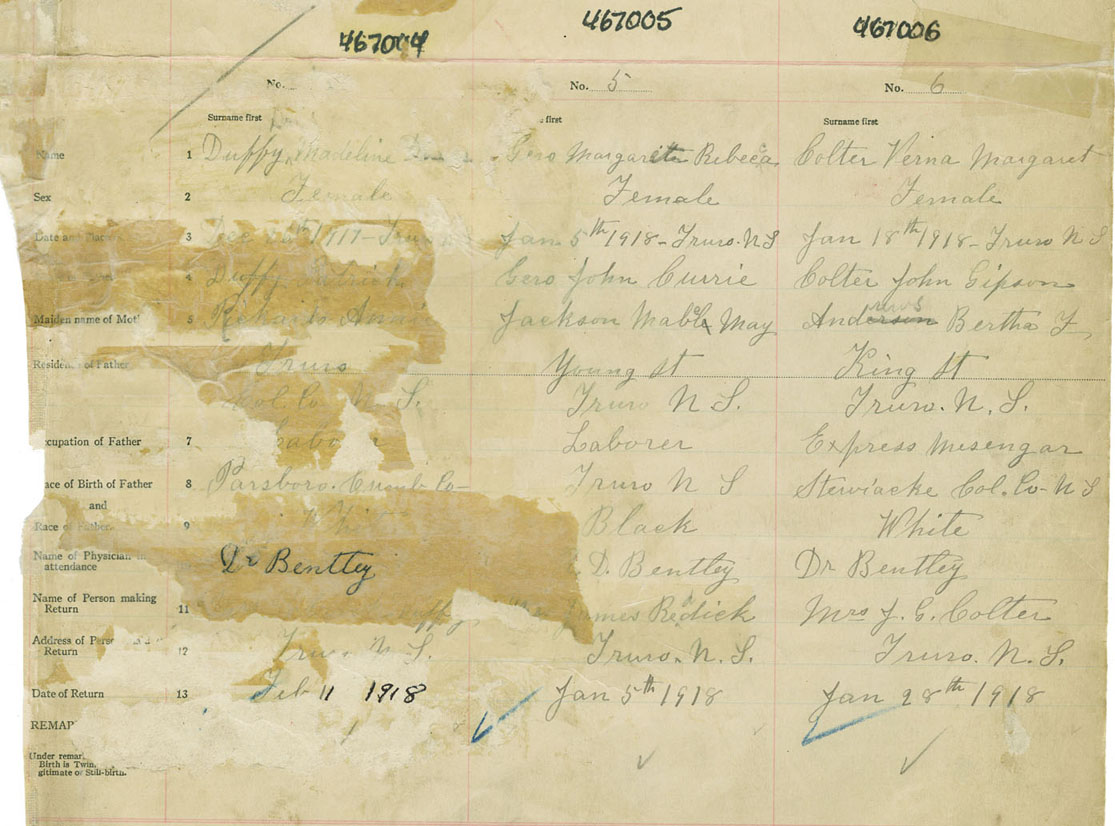 467004 467005 467006
No. No. 5 No. 6
Surname first first Surname first
Name 1 Duffy Madeline Gero Margaret Rebecca Colter Verna Margaret
Sex 2 Female Female Female
Date and Place 3 1917 - Jan 5th 1918 - Truro. N S Jan 18th 1918 - Truro N S
4 Duffy Gero John Currie Colter John Gipson
Maiden name of Mot 5 Richards Jackson Mable May Anderson rews Bertha F
Residence of Father Truro Young St King St
Col. Co N. S. Truro N S. Truro. N. S.
ccupation of Father 7 Labor Laborer Express Mesengar
ace of Birth of Father 8 Parsboro. Cumb Co Truro N S Stewiacke Col. Co - N S
and
Race of Father 9 White Black White
Name of Physician in attendance Dr Bentley D. Bentley Dr Bentley
Name of Person making Return 11 James Redick Mrs J. G. Colter
Address of Pers Return 12 Truro N. S. Truro. N. S. Truro. N. S.
Date of Return 13 Feb 11 1918 Jan 5th 1918 Jan 28th 1918
REMAR
Under remar
Birth is Twin,
gitimate or Still-birth.